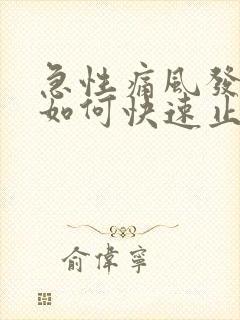 急性痛風發
如何快速止
俞偉寧